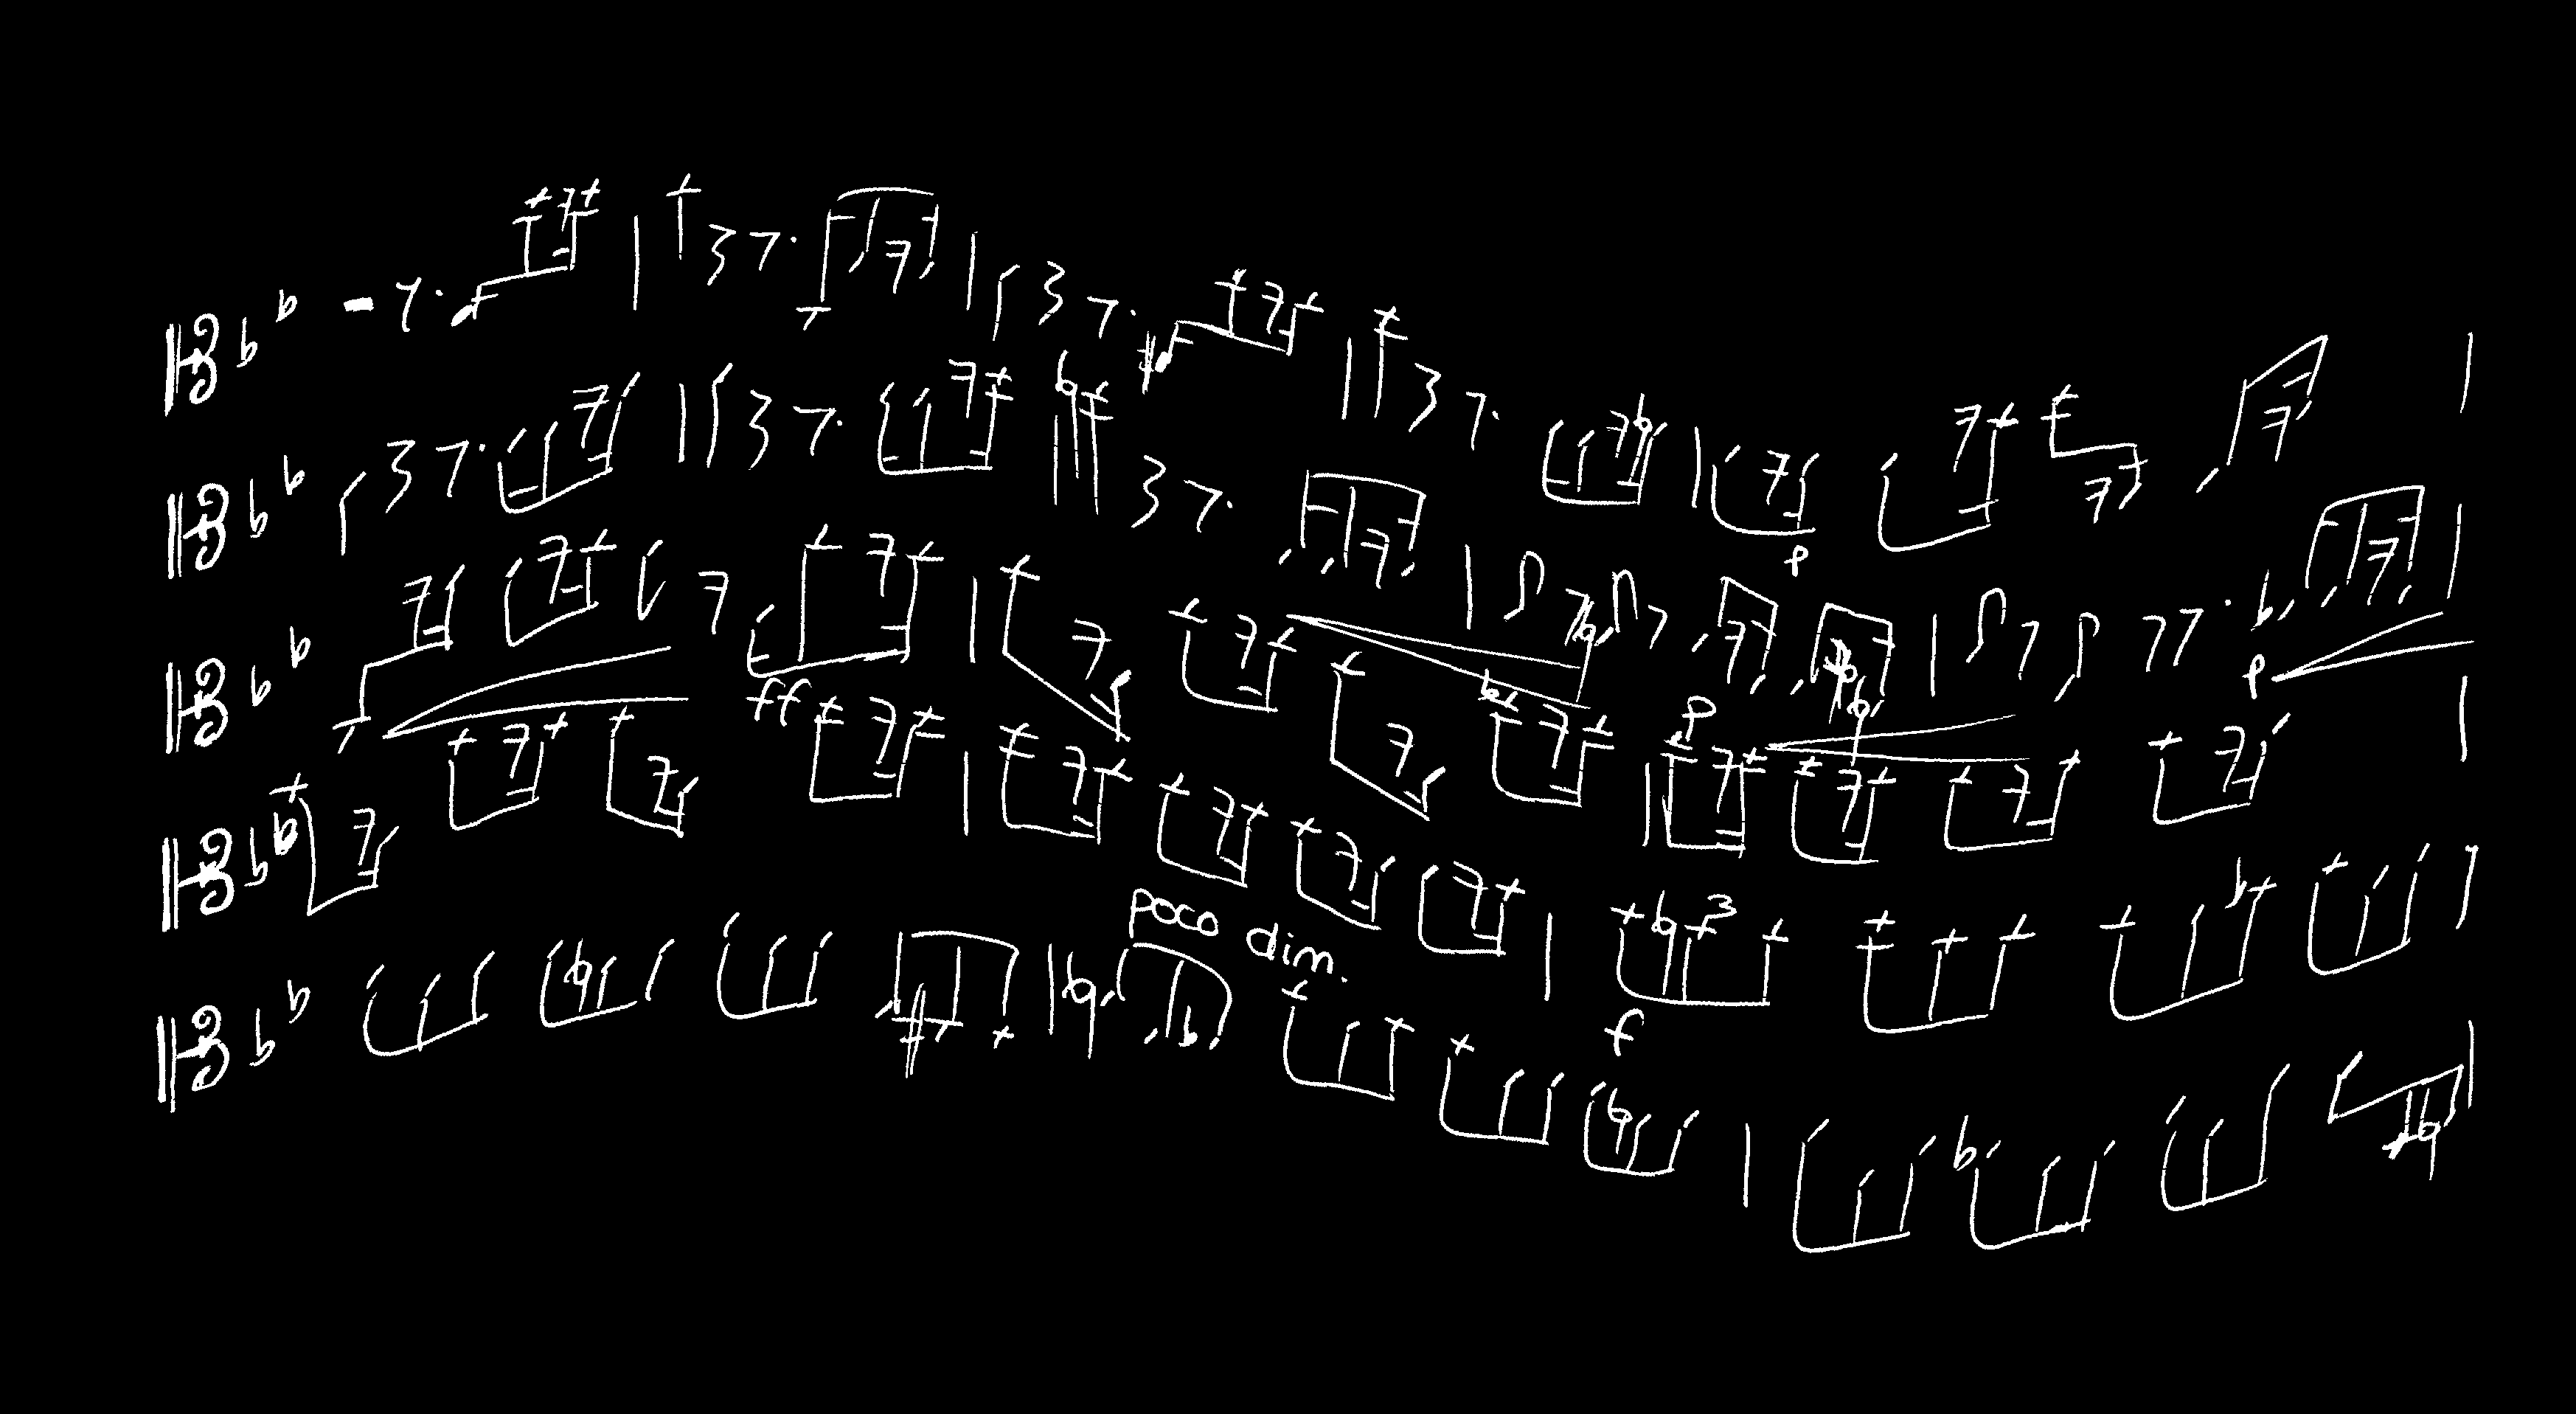 p
p
ff
p
3
poco dim.
f